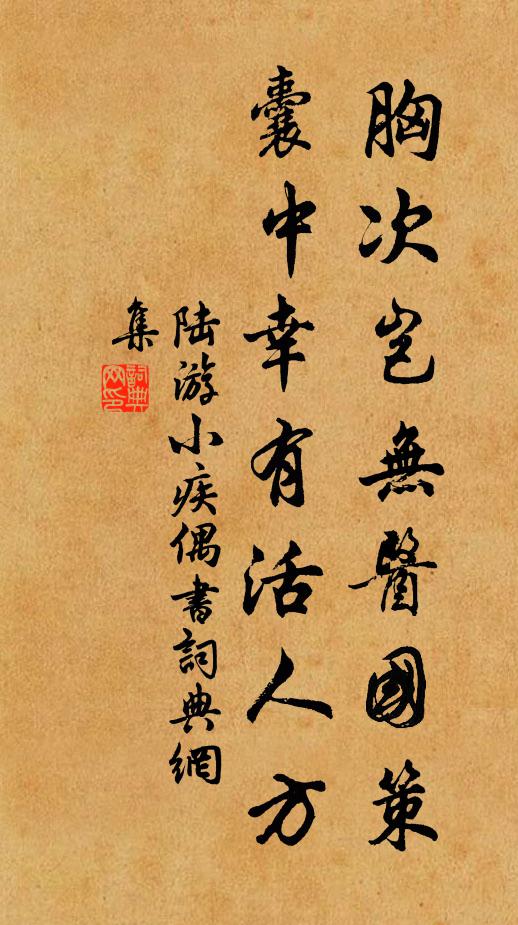 胸次豈無醫國策
囊中幸有活人方
陆游小疾偶書詞典網
集
詞典
网印